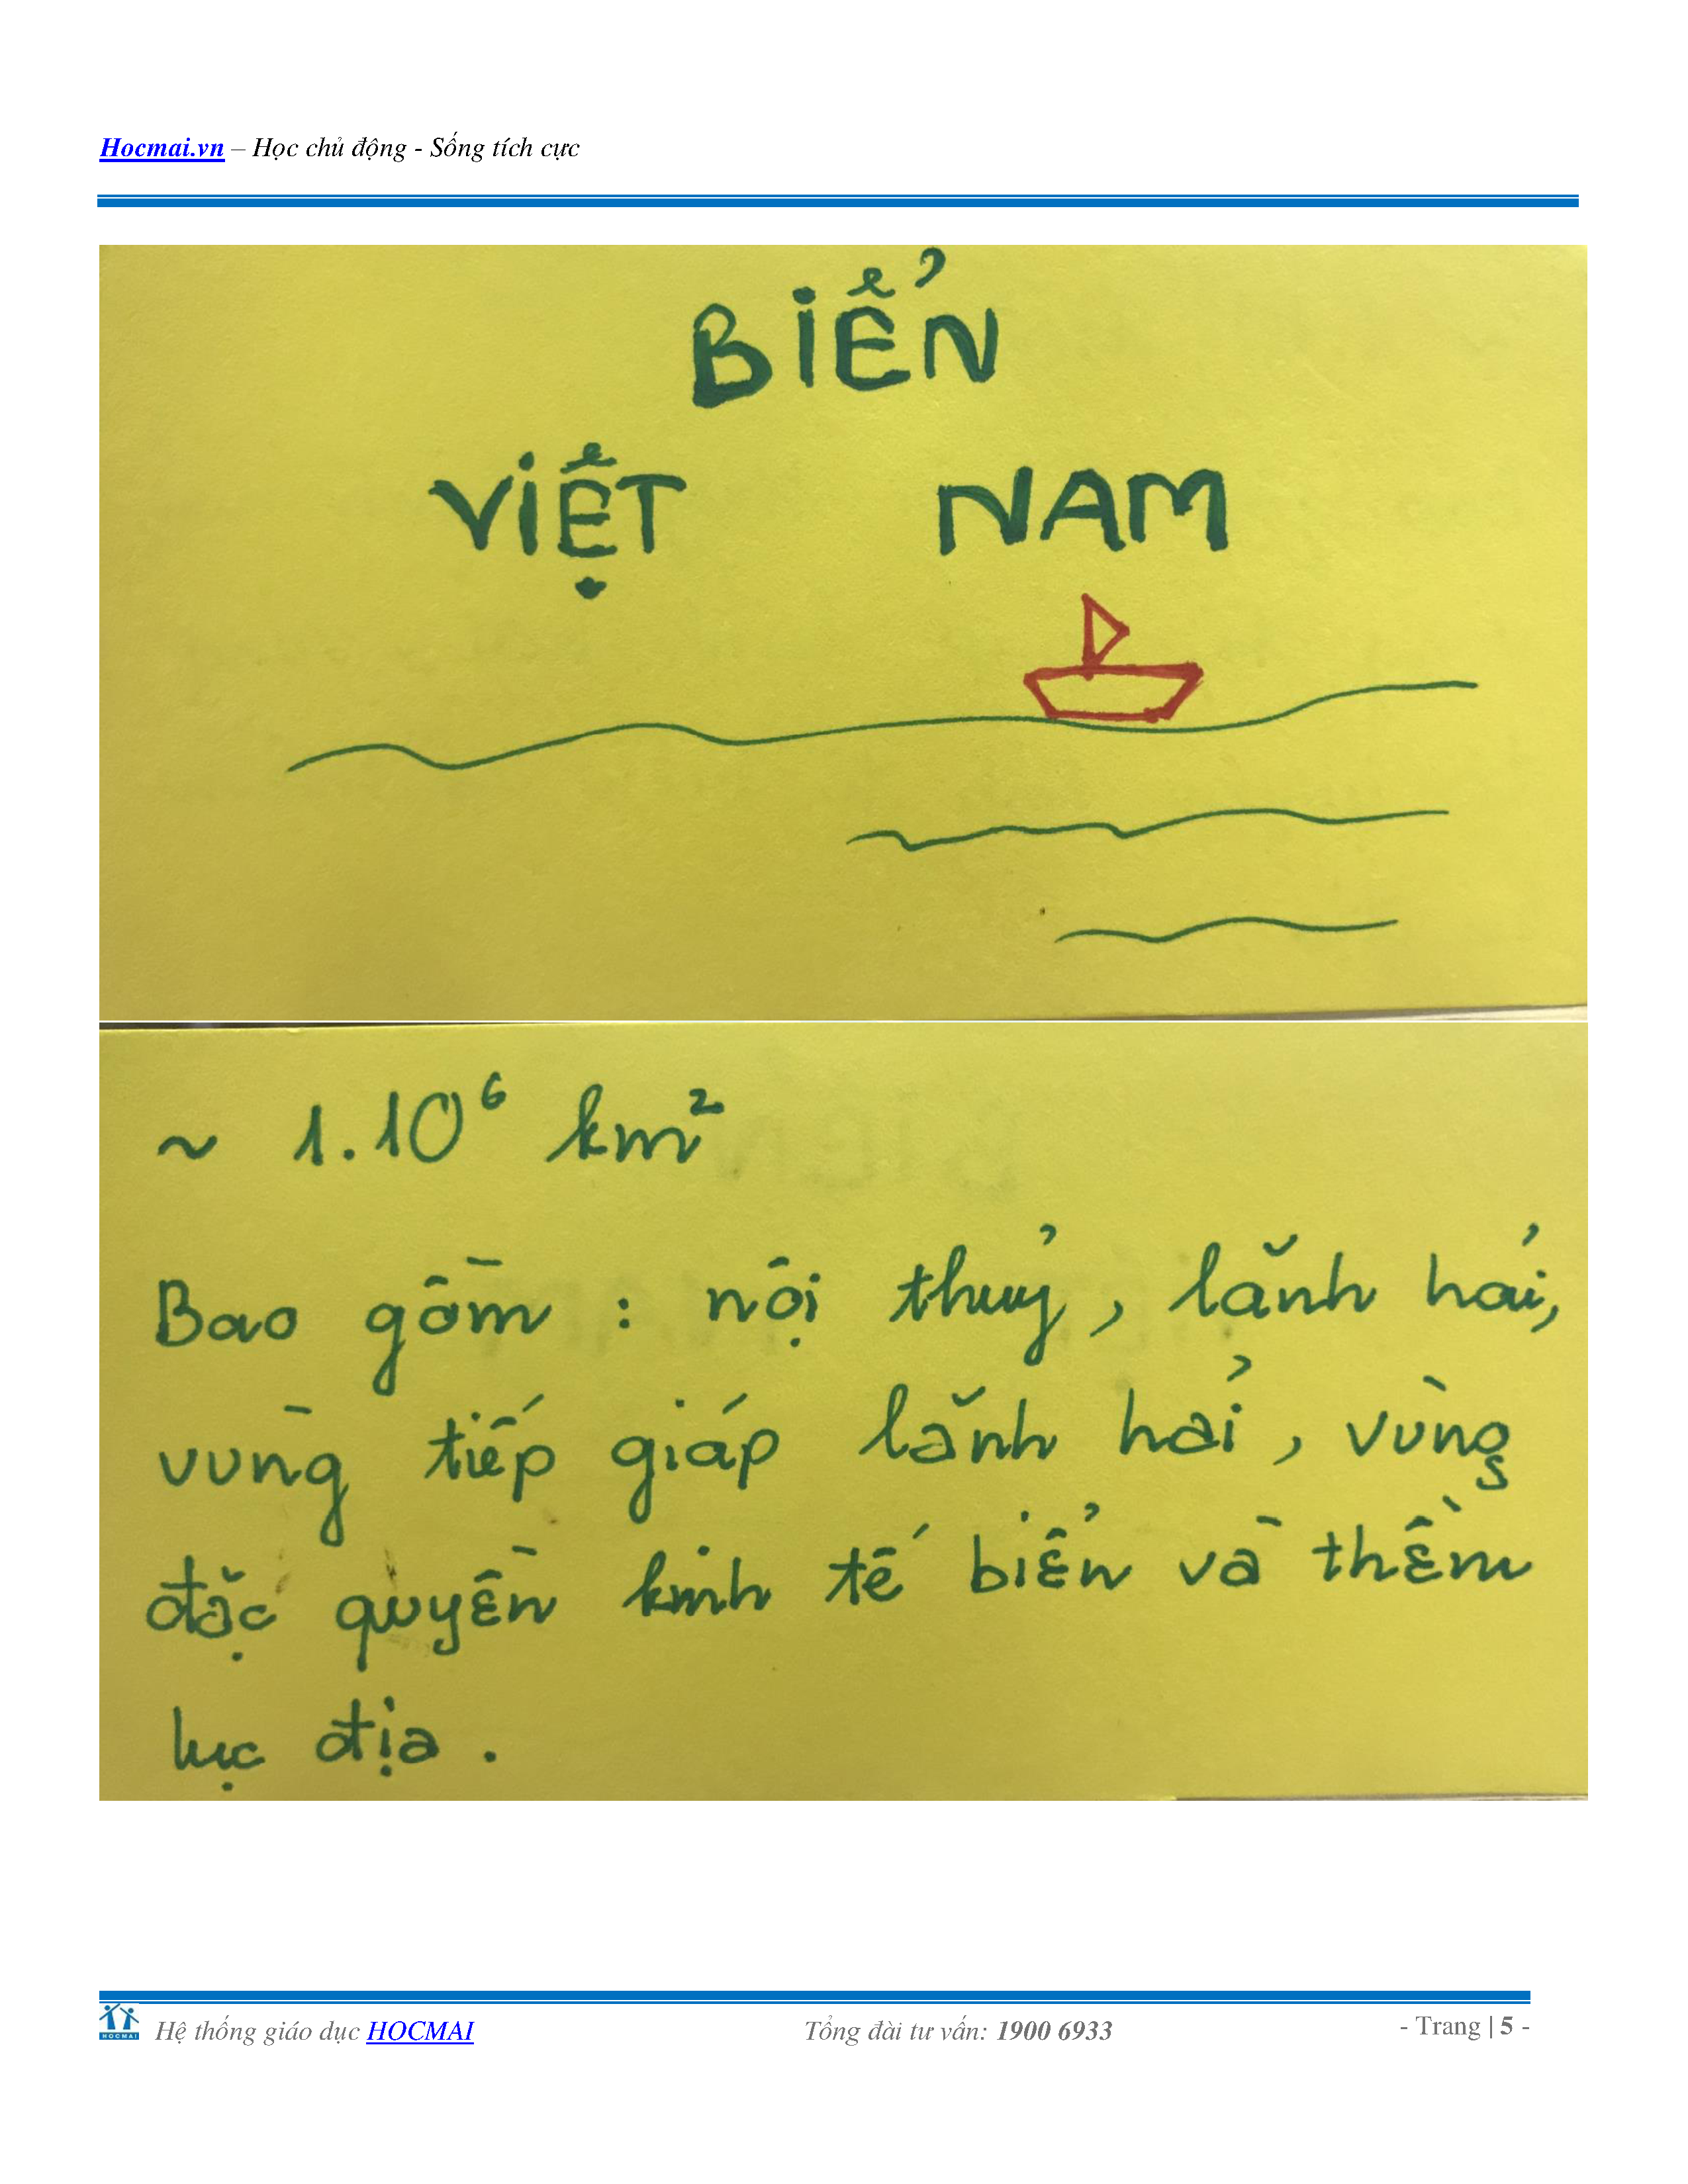 Hocmai.vn – Học chủ động - Sống tích cực
BIỂN
VIỆT NAM
~ 1.10⁶ km²
Bao gồm : nội thuỷ, lãnh hải,
vùng tiếp giáp lãnh hải, vùng
đặc quyền kinh tế biển và thềm
lục địa.
HOCMAI
Hệ thống giáo dục HOCMAI Tổng đài tư vấn: 1900 6933 - Trang | 5 -